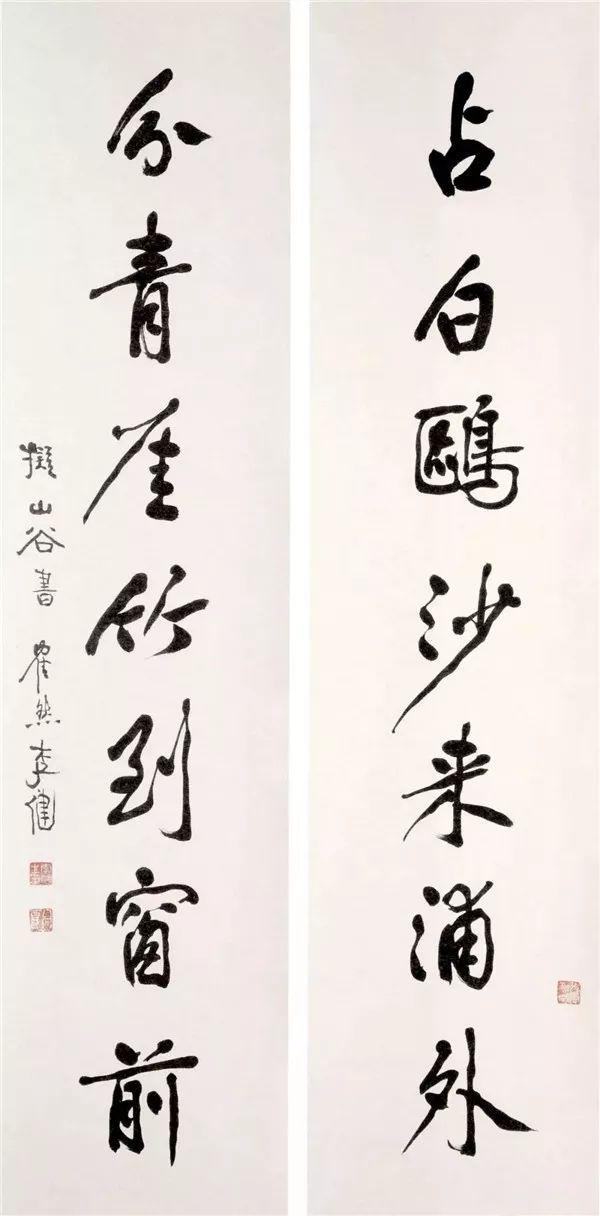 占白鷗沙来浦外
分青崖竹到窗前
擬山谷書 隺然李健